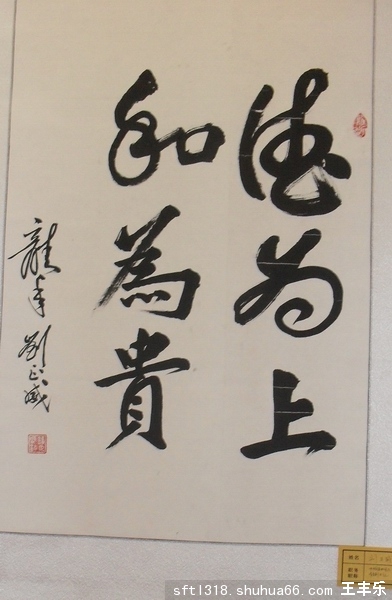 德为上
和為貴
龍年 劉正成
sftl318.shuhua66.com/ 王丰乐